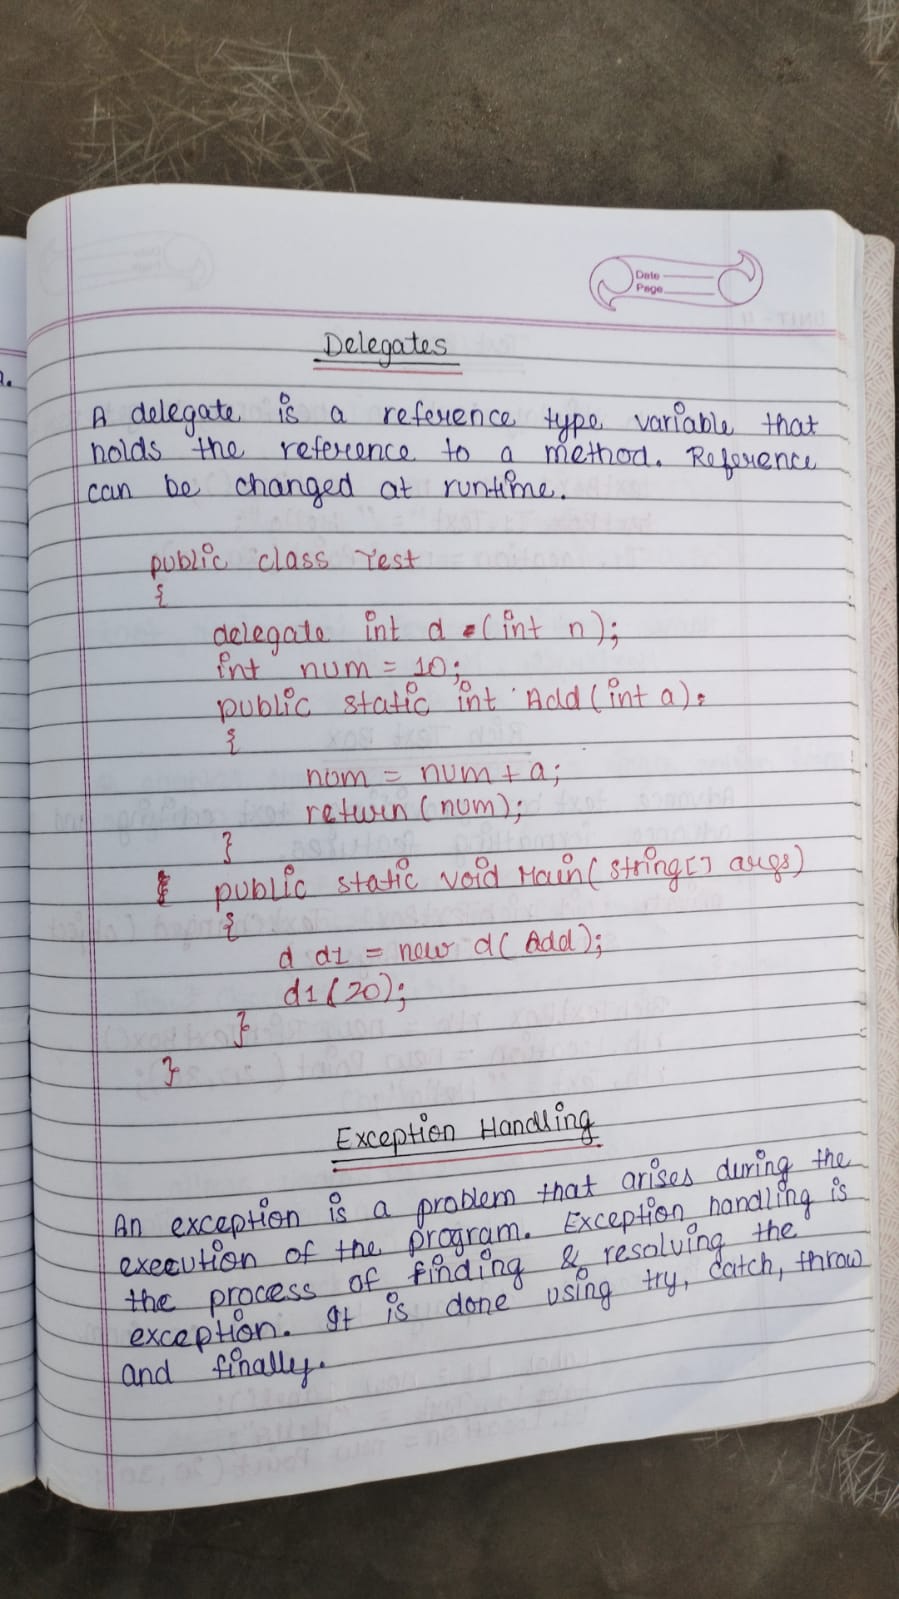 Date
Page
Delegates
A delegate is a reference type variable that
holds the reference to a method. Reference
can be changed at runtime.
public class Test
{
delegate int d (int n);
int num = 10;
public static int Add(int a);
{
num = num + a;
return (num);
}
public static void Main( string[] args)
{
d d1 = new d( Add);
d1(20);
}
}
Exception Handling
An exception is a problem that arises during the
execution of the program. Exception handling is
the process of finding & resolving the
exception. It is done using try, catch, throw
and finally.